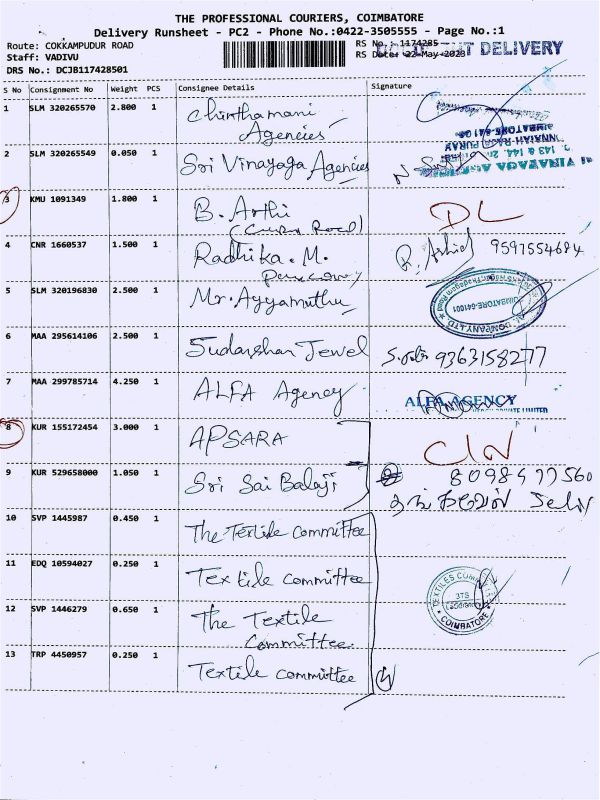 THE PROFESSIONAL COURIERS, COIMBATORE
Delivery Runsheet - PC2 - Phone No.:0422-3505555 - Page No.:1
Route: COKKAMPUDUR ROAD
RS No.: 1174285 DELIVERY
Staff: VADIVU
RS Date: 22-May-2023
DRS No.: DCJB117428501
S No Consignment No Weight PCS Consignee Details Signature
1 SLM 320265570 2.800 1 Chinthamani
Agencies
2 SLM 320265549 0.050 1 Sri Vinayaga Agencies
3 KMU 1091349 1.800 1 B. Arthi DL
4 CNR 1660537 1.500 1 Radhika. M. 9597554684
5 SLM 320196830 2.500 1 Mr. Ayyamuthu
COIMBATORE-641001
6 MAA 295614106 2.500 1 Sudarshan Jewel 9363158277
7 MAA 299785714 4.250 1 ALFA Agency ALFA AGENCY
PRIVATE LIMITED
8 KUR 155172454 3.000 1 APSARA
9 KUR 529658000 1.050 1 Sri Sai Balaji
10 SVP 1445987 0.450 1 The Textile committee
11 EDQ 10594027 0.250 1 Textile committee
12 SVP 1446279 0.650 1 The Textile
Committee
TEXTILES COMM
COIMBATORE
13 TRP 4450957 0.250 1 Textile committee (4)